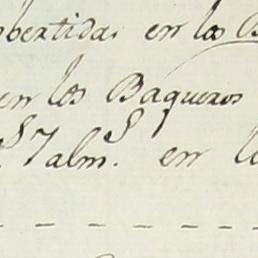 obertidas en los B
en los Baqueros
7 alm.s en l